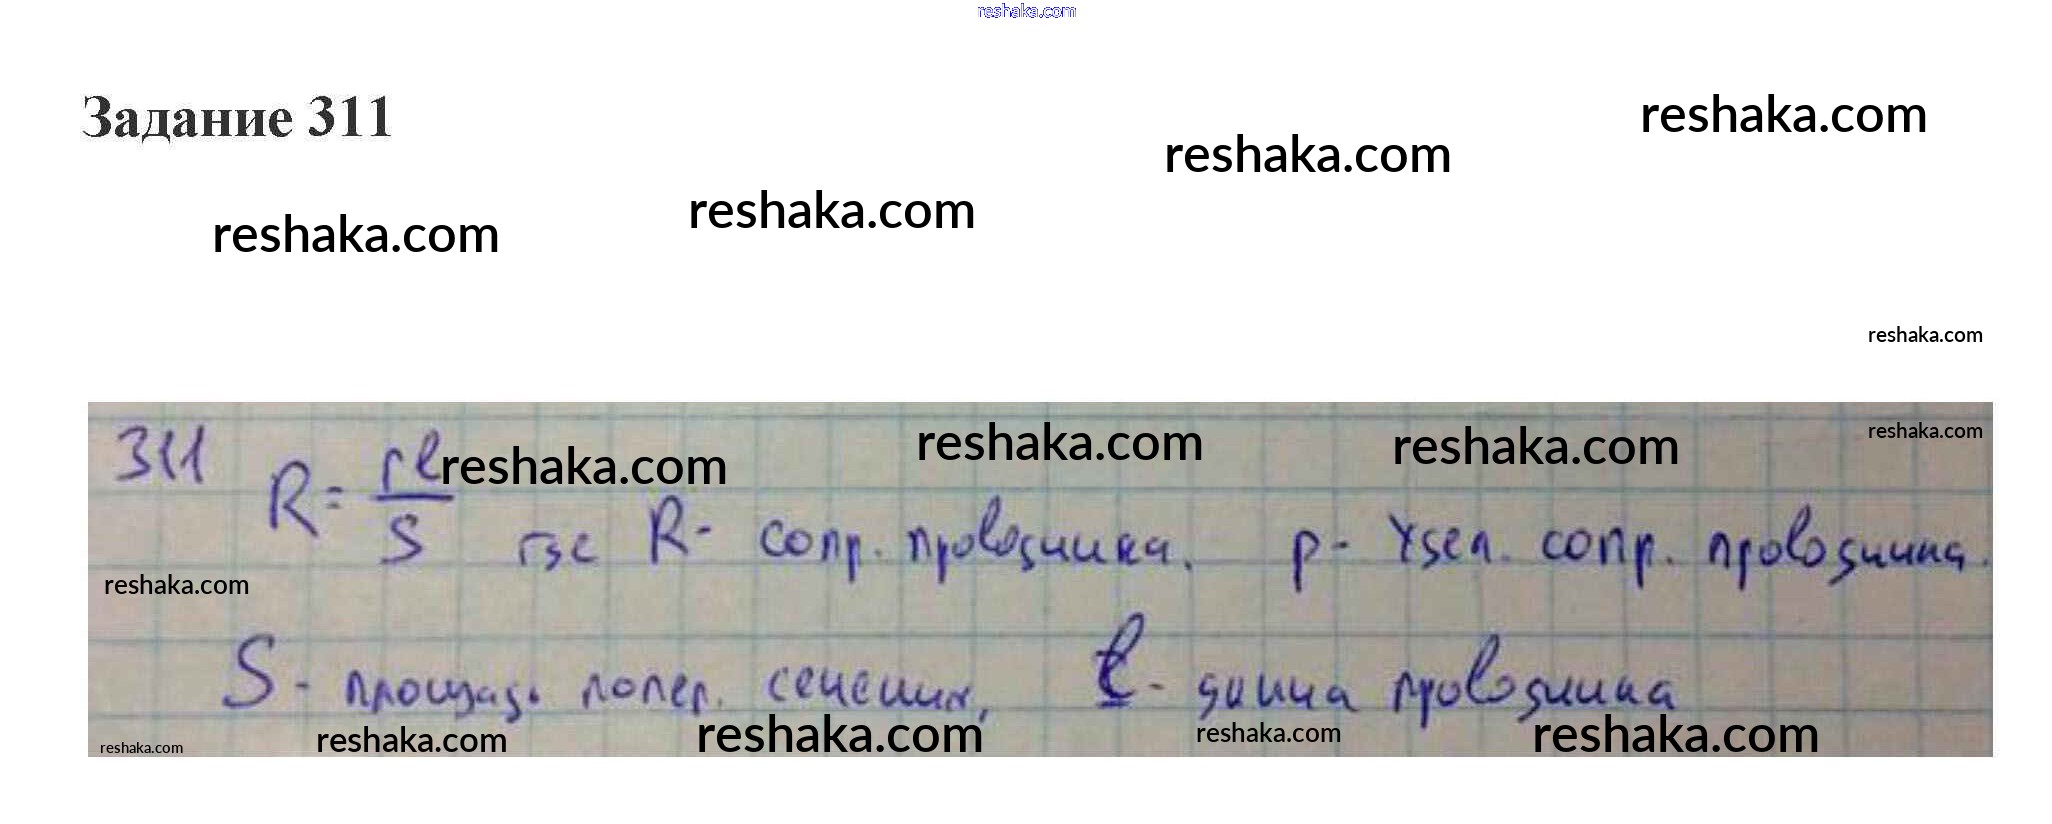 reshaka.com
Задание 311
reshaka.com
reshaka.com
reshaka.com
reshaka.com
reshaka.com
311 R = rl/S где R - сопр. проводника. p - удел. сопр. проводника.
reshaka.com
reshaka.com
reshaka.com
reshaka.com
reshaka.com
S - площадь попер. сечения, l - длина проводника
reshaka.com
reshaka.com
reshaka.com
reshaka.com
reshaka.com